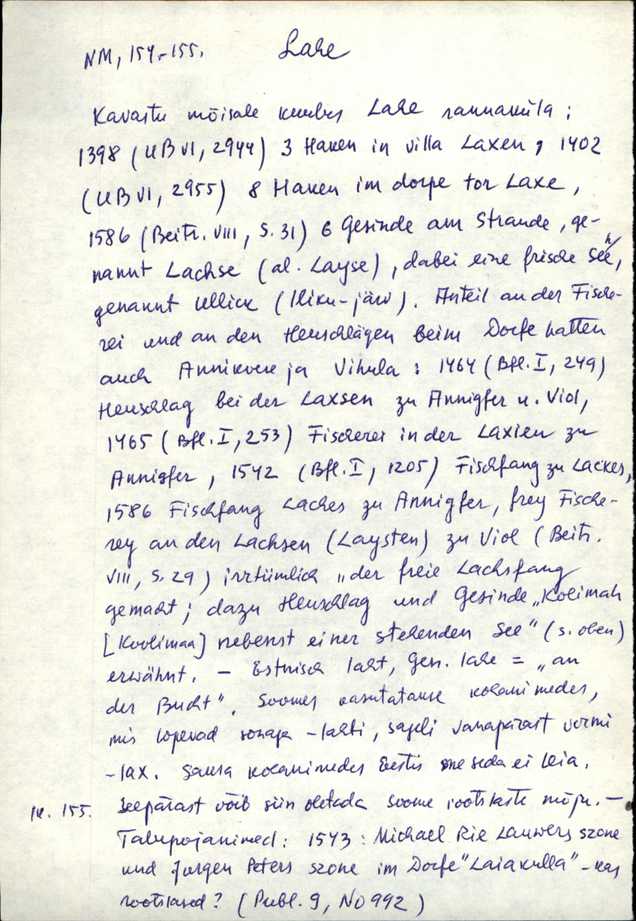 NM, 154-155. Lahe
Kavastu mõisale kuulus Lahe rannaküla:
1398 (UB VI, 2944) 3 Haken in villa Laxen, 1402
(UB VI, 2955) 8 Haken im dorpe tor Laxe,
1586 (Beitr. VIII, S. 31) 6 Gesinde am Strande, ge-
nannt Lachse (al. Layse), dabei eine frische See,
genannt Ullick (Iliku-järv). Anteil an der Fische-
rei und an den Heuschlägen beim Dorfe hatten
auch Annikvere ja Vihula: 1464 (Bfl. I, 249)
Heuschlag bei der Laxsen zu Annigfer u. Viol,
1465 (Bfl. I, 253) Fischerei in der Laxien zu
Annigfer, 1542 (Bfl. I, 1205) Fischfang zu Lackes,
1586 Fischfang Laches zu Annigfer, frey Fische-
rey an den Lachsen (Laysten) zu Viol (Beitr.
VIII, S. 29) irrtümlich „der freie Lachsfang
gemacht; dazu Heuschlag und Gesinde „Kolimah
[Koolimaa] nebenst einer stehenden See" (s. oben)
erwähnt. – Estnisch laht, Gen. lahe = „an
der Bucht". Soomes kasutatakse kohanimedes,
mis lõpevad sõnaga -lahti, sageli vanapärast vormi
-lax. Sama kohanimedes Eestis me seda ei leia.
lk. 155. Seepärast võib siin oletada soome rootslaste mõju. –
Talupojanimed: 1543: Michael Rie Lauwers szone
und Jurgen Peters szone im Dorfe "Laiakulla" – kas
rootslased? (Publ. 9, No 992)